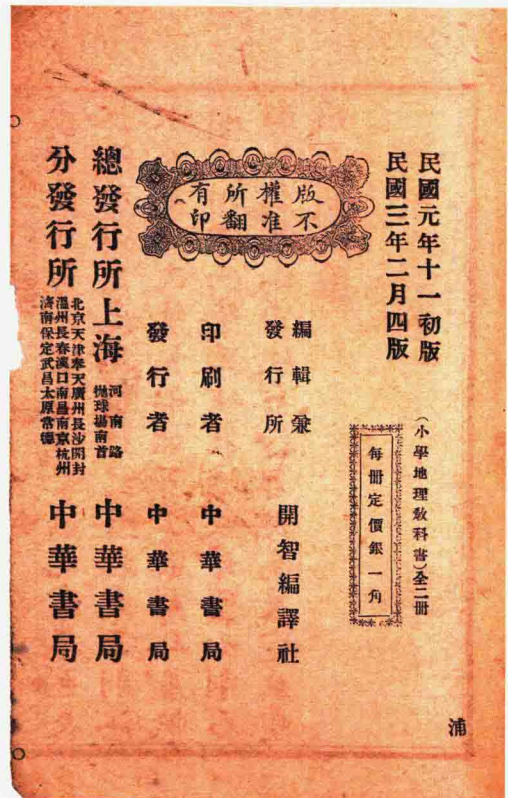 民國元年十一初版
民國三年二月四版
(小學地理敎科書)全二册
每册定價銀一角
版權所有
不准翻印
編輯兼
發行所
開智編譯社
印刷者
中華書局
發行者
中華書局
總發行所上海
河南路
拋球場南首
中華書局
分發行所
北京天津奉天廣州長沙開封
溫州長春漢口南昌南京杭州
濟南保定武昌太原常德
中華書局
浦